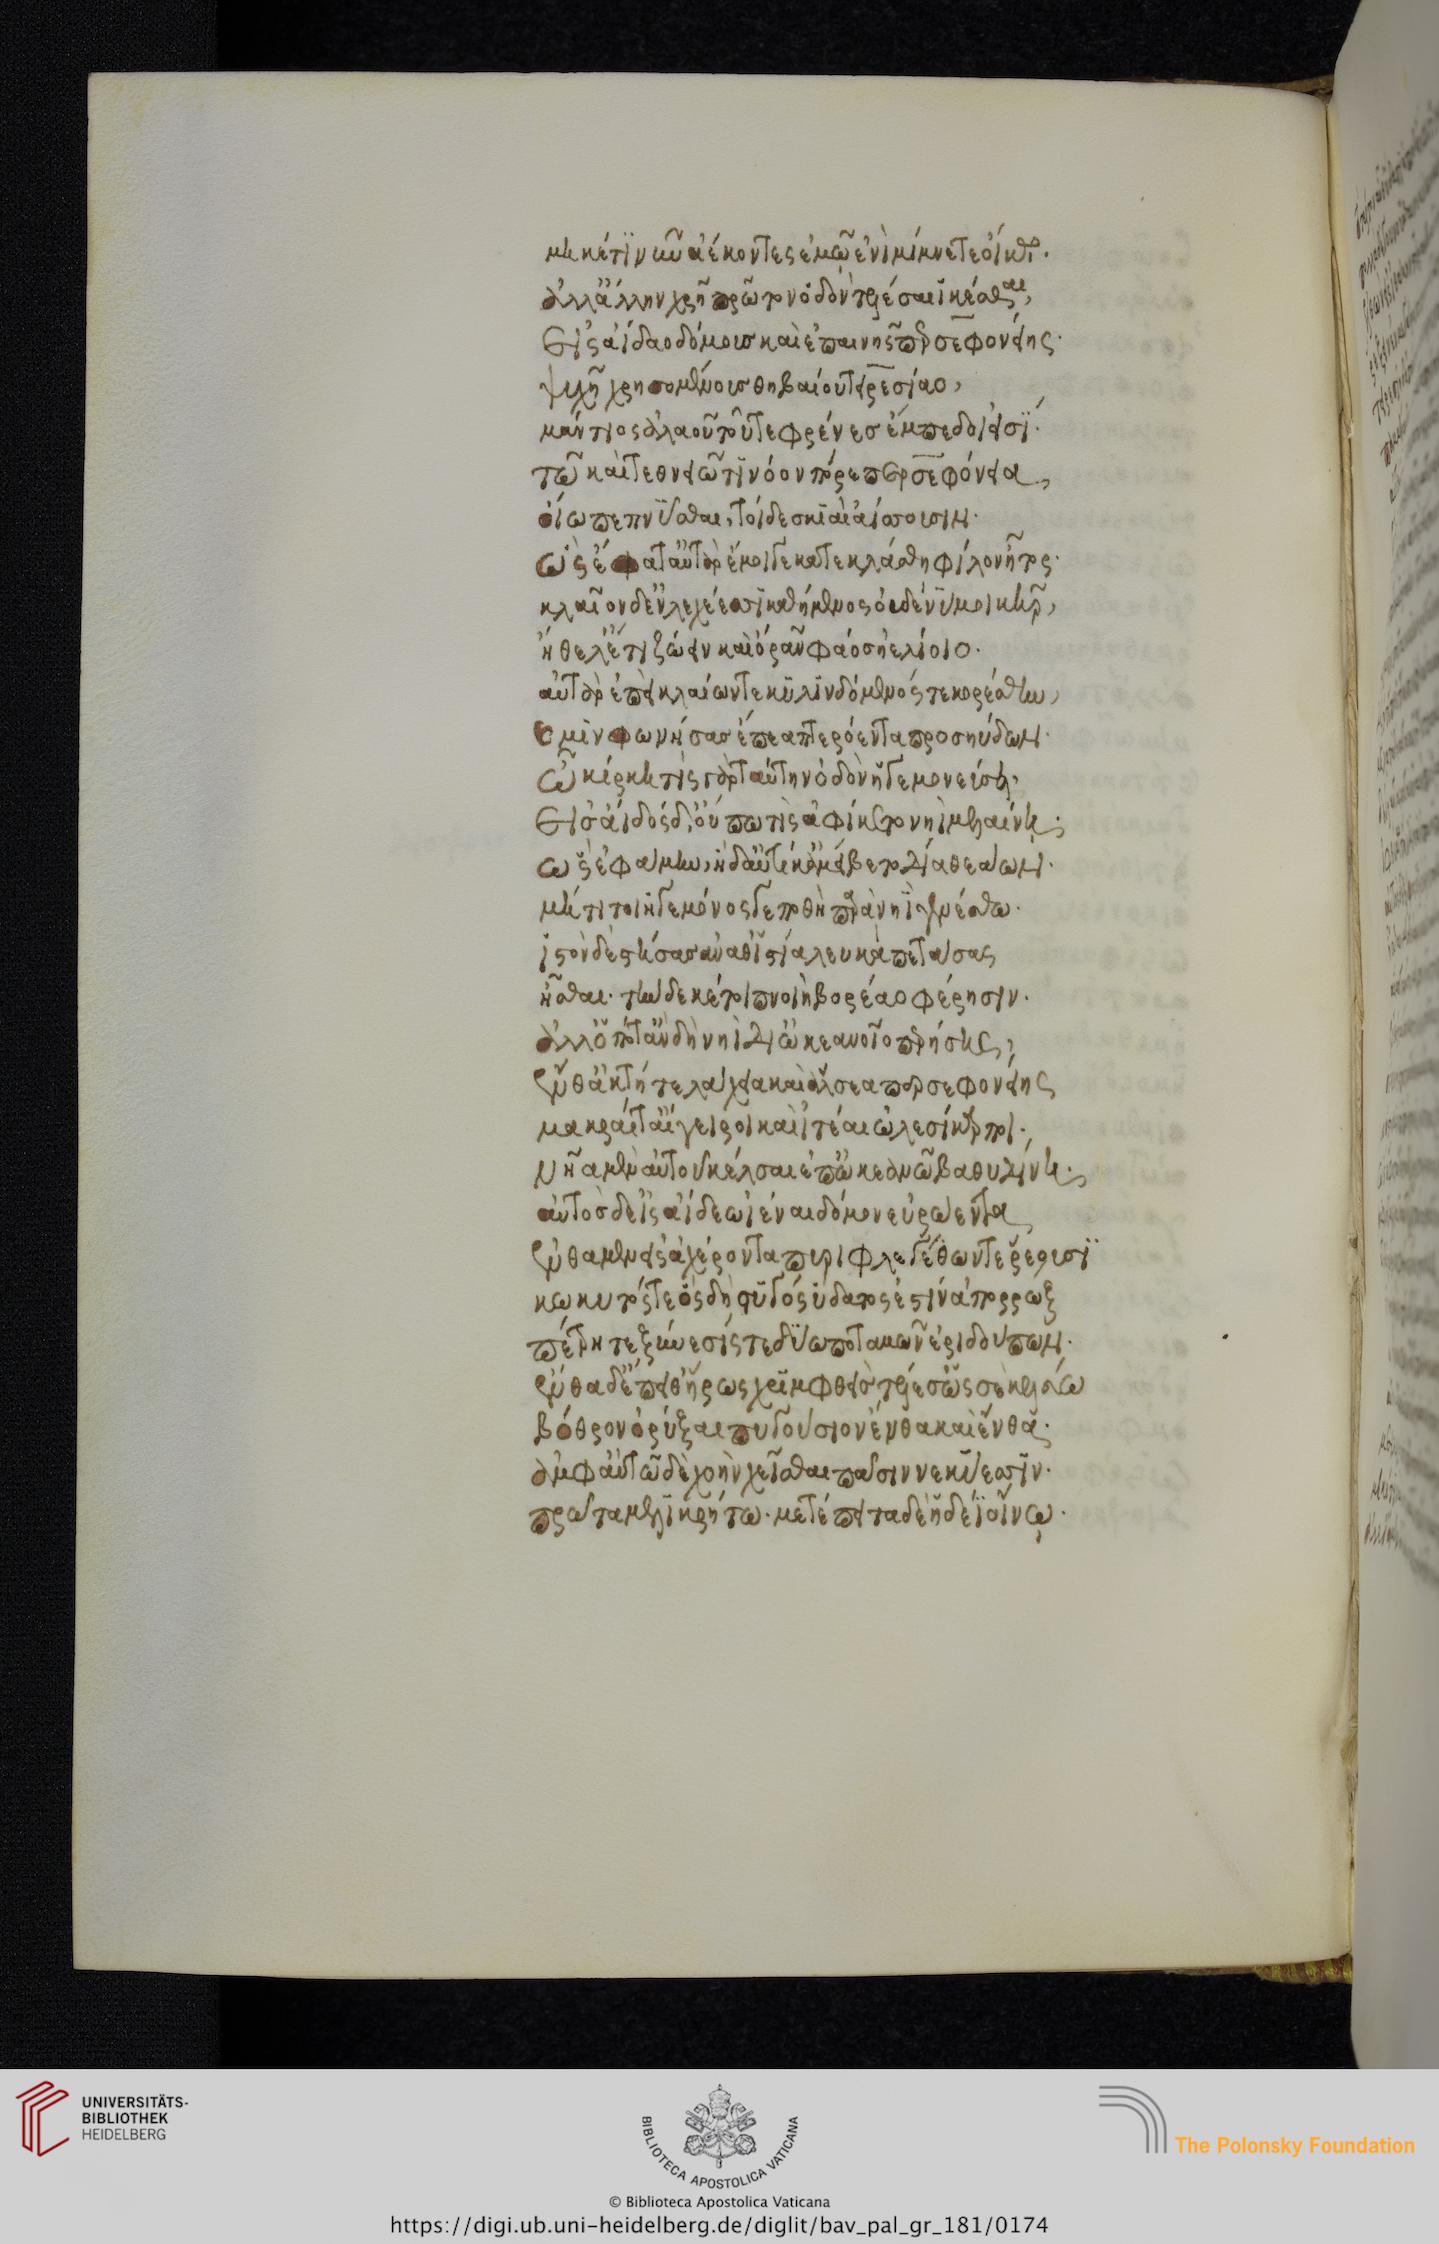 μηκέτι νῦν ἀέκοντες ἐμῷ ἐνὶ μίμνετε οἴκῳ·
ἀλλ' ἄλλην χρὴ πρῶτον ὁδὸν τελέσαι καὶ ἱκέσθαι,
εἰς ἀΐδαο δόμους καὶ ἐπαινῆς περσεφονείης·
ψυχῇ χρησομένους θηβαίου τειρεσίαο,
μάντιος ἀλαοῦ τοῦ τε φρένες ἔμπεδοι εἰσί·
τῷ καὶ τεθνειῶτι νόον πόρε περσεφόνεια,
οἴω πεπνῦσθαι, τοὶ δὲ σκιαὶ ἀΐσσουσιν·
ὣς ἔφατ' αὐτὰρ ἔμοιγε κατεκλάσθη φίλον ἦτορ·
κλαῖον δ' ἐν λεχέεσσι καθήμενος οὐδέ νύ μοι κῆρ,
ἤθελ' ἔτι ζώειν καὶ ὁρᾶν φάος ἠελίοιο·
αὐτὰρ ἐπεὶ κλαίων τε κυλινδόμενός τε κορέσθην,
καί μιν φωνήσας ἔπεα πτερόεντα προσηύδων·
ὦ κίρκη τίς γὰρ ταύτην ὁδὸν ἡγεμονεύσει·
εἰς ἄϊδος δ' οὔπω τις ἀφίκετο νηῒ μελαίνῃ·
ὣς ἐφάμην, ἡ δ' αὐτίκ' ἀμείβετο δῖα θεάων·
μή τι τοι ἡγεμόνος γε ποθὴ παρὰ νηῒ μελέσθω·
ἱστὸν δὲ στήσας ἀνά θ' ἱστία λευκὰ πετάσας
ἧσθαι· τὴν δέ κέ τοι πνοιὴ βορέαο φέρησιν·
ἀλλ' ὁπότ' ἂν δὴ νηῒ δι' ὠκεανοῖο περήσῃς,
ἔνθ' ἀκτή τε λάχεια καὶ ἄλσεα περσεφονείης
μακραί τ' αἴγειροι καὶ ἰτέαι ὠλεσίκαρποι·
νῆα μὲν αὐτοῦ κέλσαι ἐπ' ὠκεανῷ βαθυδίνῃ·
αὐτὸς δ' εἰς ἀΐδεω ἰέναι δόμον εὐρώεντα
ἔνθα μὲν εἰς ἀχέροντα πυριφλεγέθων τε ῥέουσι
κωκυτός τε ὃς δὴ στυγὸς ὕδατός ἐστιν ἀπορρώξ
πέτρη τε ξύνεσίς τε δύω ποταμῶν ἐριδούπων·
ἔνθα δ' ἔπειθ' ἥρως χριμφθεὶς πέλας ὥς σε κελεύω
βόθρον ὀρύξαι πυγούσιον ἔνθα καὶ ἔνθα·
ἀμφ' αὐτῷ δὲ χοὴν χεῖσθαι πᾶσιν νεκύεσσιν·
πρῶτα μελικρήτω· μετέπειτα δὲ ἡδέϊ οἴνῳ·
UNIVERSITÄTS-
BIBLIOTHEK
HEIDELBERG
BIBLIOTECA APOSTOLICA VATICANA
The Polonsky Foundation
© Biblioteca Apostolica Vaticana
https://digi.ub.uni-heidelberg.de/diglit/bav_pal_gr_181/0174